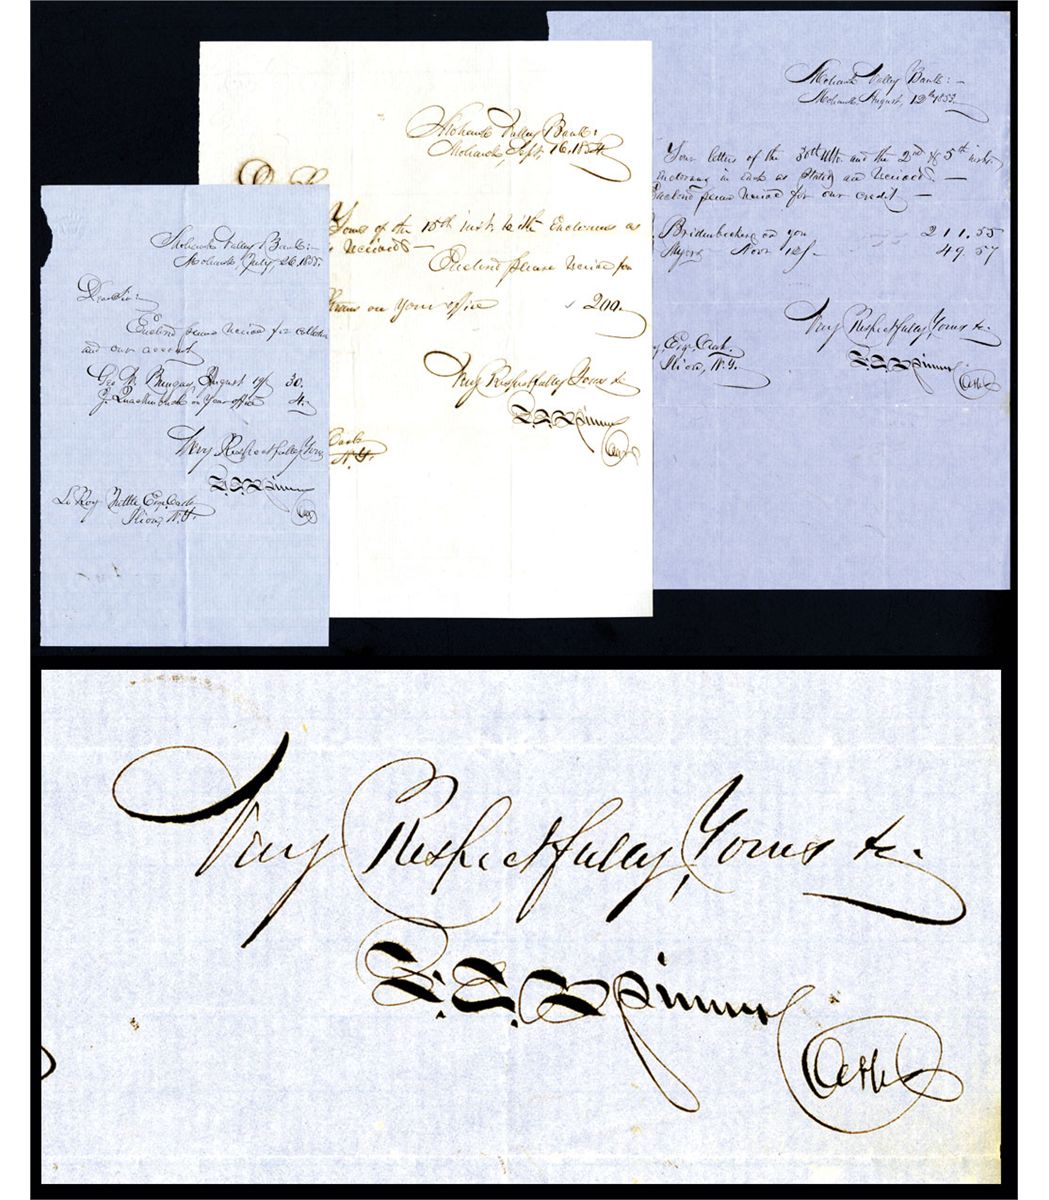 Mohawk Valley Bank:
Mohawk, July, 26. 1855.
Dear Sir:
Enclosed please receive for collection
and our account
Geo W. Bungay, August 19/ 30.
J. Quackenbush on Your office 4.
Very Respectfully Yours
F. E. Spinner
Cash
Le Roy Tuttle Esqr. Cash
Ilion, N. Y.
Mohawk Valley Bank:
Mohawk Sept, 16. 1854.
D S
Yours of the 15th inst with Enclosures as
is received
Enclosed please receive for
on your office 200.
Very Respectfully Yours &c
F. E. Spinner
Cash
Cash
N. Y.
Mohawk Valley Bank:
Mohawk August, 12th 1853.
Your letters of the 30th Ulto. and the 2nd & 5th insts.
enclosing in each as stated are received
Enclosed please receive for our credit
Bridenbecker on you 211.55
Myers Novr 12/ 49.57
Very Respectfully, Yours &c.
F. E. Spinner
Cash
Esqr. Cash.
Ilion, N. Y.
Very Respectfully, Yours &c.
F. E. Spinner
Cash